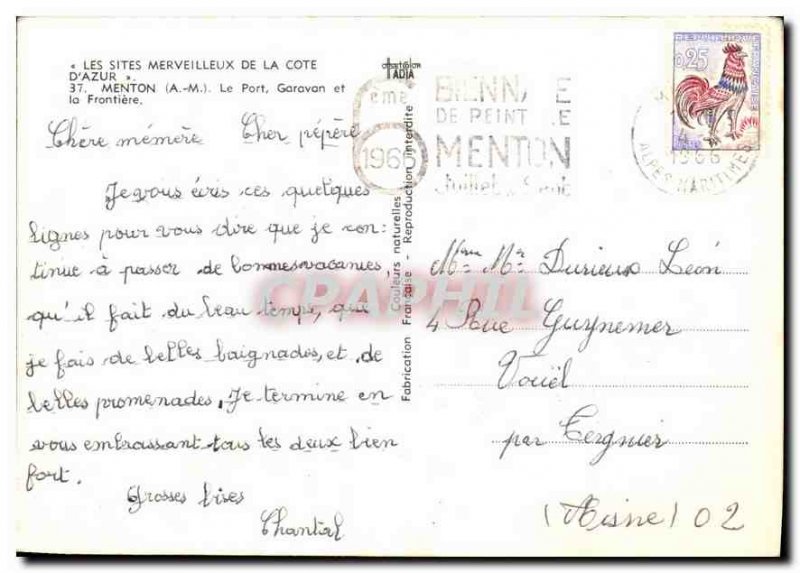 « LES SITES MERVEILLEUX DE LA COTE
D'AZUR ».
37. MENTON (A.-M.). Le Port, Garavan et
la Frontière.
Chère mémère Cher pépère
Je vous écris ces quelques
lignes pour vous dire que je con-
tinue à passer de bonnes vacances,
qu'il fait du beau temps, que
je fais de belles baignades, et de
belles promenades. Je termine en
vous embrassant tous les deux bien
fort.
Grosses bises
Chantal
TADIA
Couleurs naturelles
Fabrication Française - Reproduction interdite
6ème
1966
BIENNALE
DE PEINTURE
MENTON
Juillet Sept
0,25
1966
ALPES MARITIMES
Mme Mr Durieux Léon
4 Rue Guynemer
Vouël
par Tergnier
(Aisne) 02
CPAPHIL